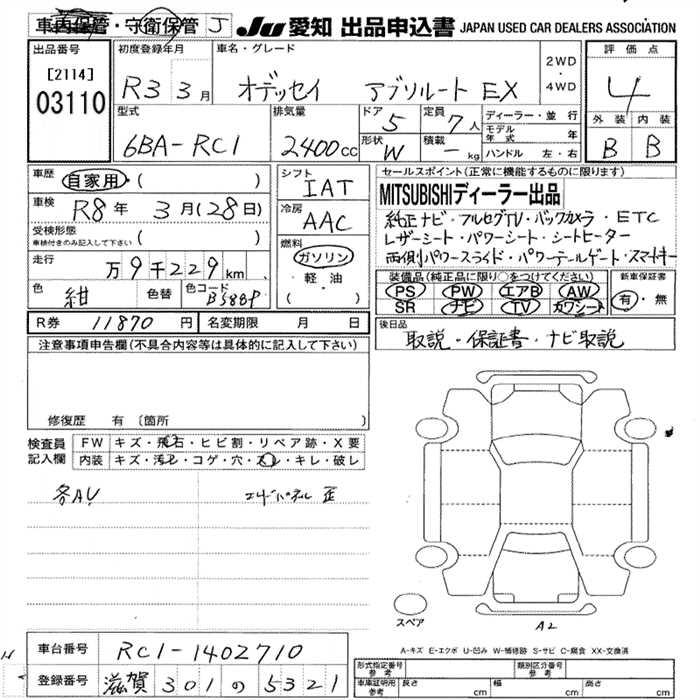 車内保管・守衛保管 J JU 愛知 出品申込書 JAPAN USED CAR DEALERS ASSOCIATION
出品番号 初度登録年月 車名・グレード 2WD・4WD 評価点
[2114] 03110 R3 3月 オデッセイ アブソルート EX 4
型式 排気量 ドア 5 定員 7人 ディーラー・並行 外装 内装
6BA-RC1 2400cc 形状 W 積載 - kg モデル年式 年 B B
ハンドル 左・右
車歴 自家用・( ) シフト IAT セールスポイント(正常に機能するものに限ります)
MITSUBISHIディーラー出品
車検 R8年 3月(28日) 冷房 AAC 純正ナビ・フルセグTV・バックカメラ・ETC
受検形態 車検付きのみ記入して下さい ( ) 燃料 ガソリン・軽油 ( ) レザーシート・パワーシート・シートヒーター
走行 万9千229km 両側パワースライド・パワーテールゲート・スマートキー
色 紺 色替 色コード B588P 装備品(純正品に限り○をつけてください) 新車保証書
PS PW エアB AW 有・無
SR ナビ TV カワシート
R券 11870円 名変期限 月 日 後日品
取説・保証書・ナビ取説
注意事項申告欄(不具合内容等は具体的に記入して下さい)
修復歴 有 〔箇所 〕
検査員記入欄 FW キズ・飛石・ヒビ割・リペア跡・X要
内装 キズ・汚レ・コゲ・穴・スレ・キレ・破レ
各AU
スペア A2
A-キズ E-エクボ U-凹み W-補修跡 S-サビ C-腐食 XX-交換済
車台番号 RC1-1402710
登録番号 滋賀 301 の 5321
形式指定番号 類別区分番号
車庫証明用参考 長さ cm 幅 cm 高さ cm